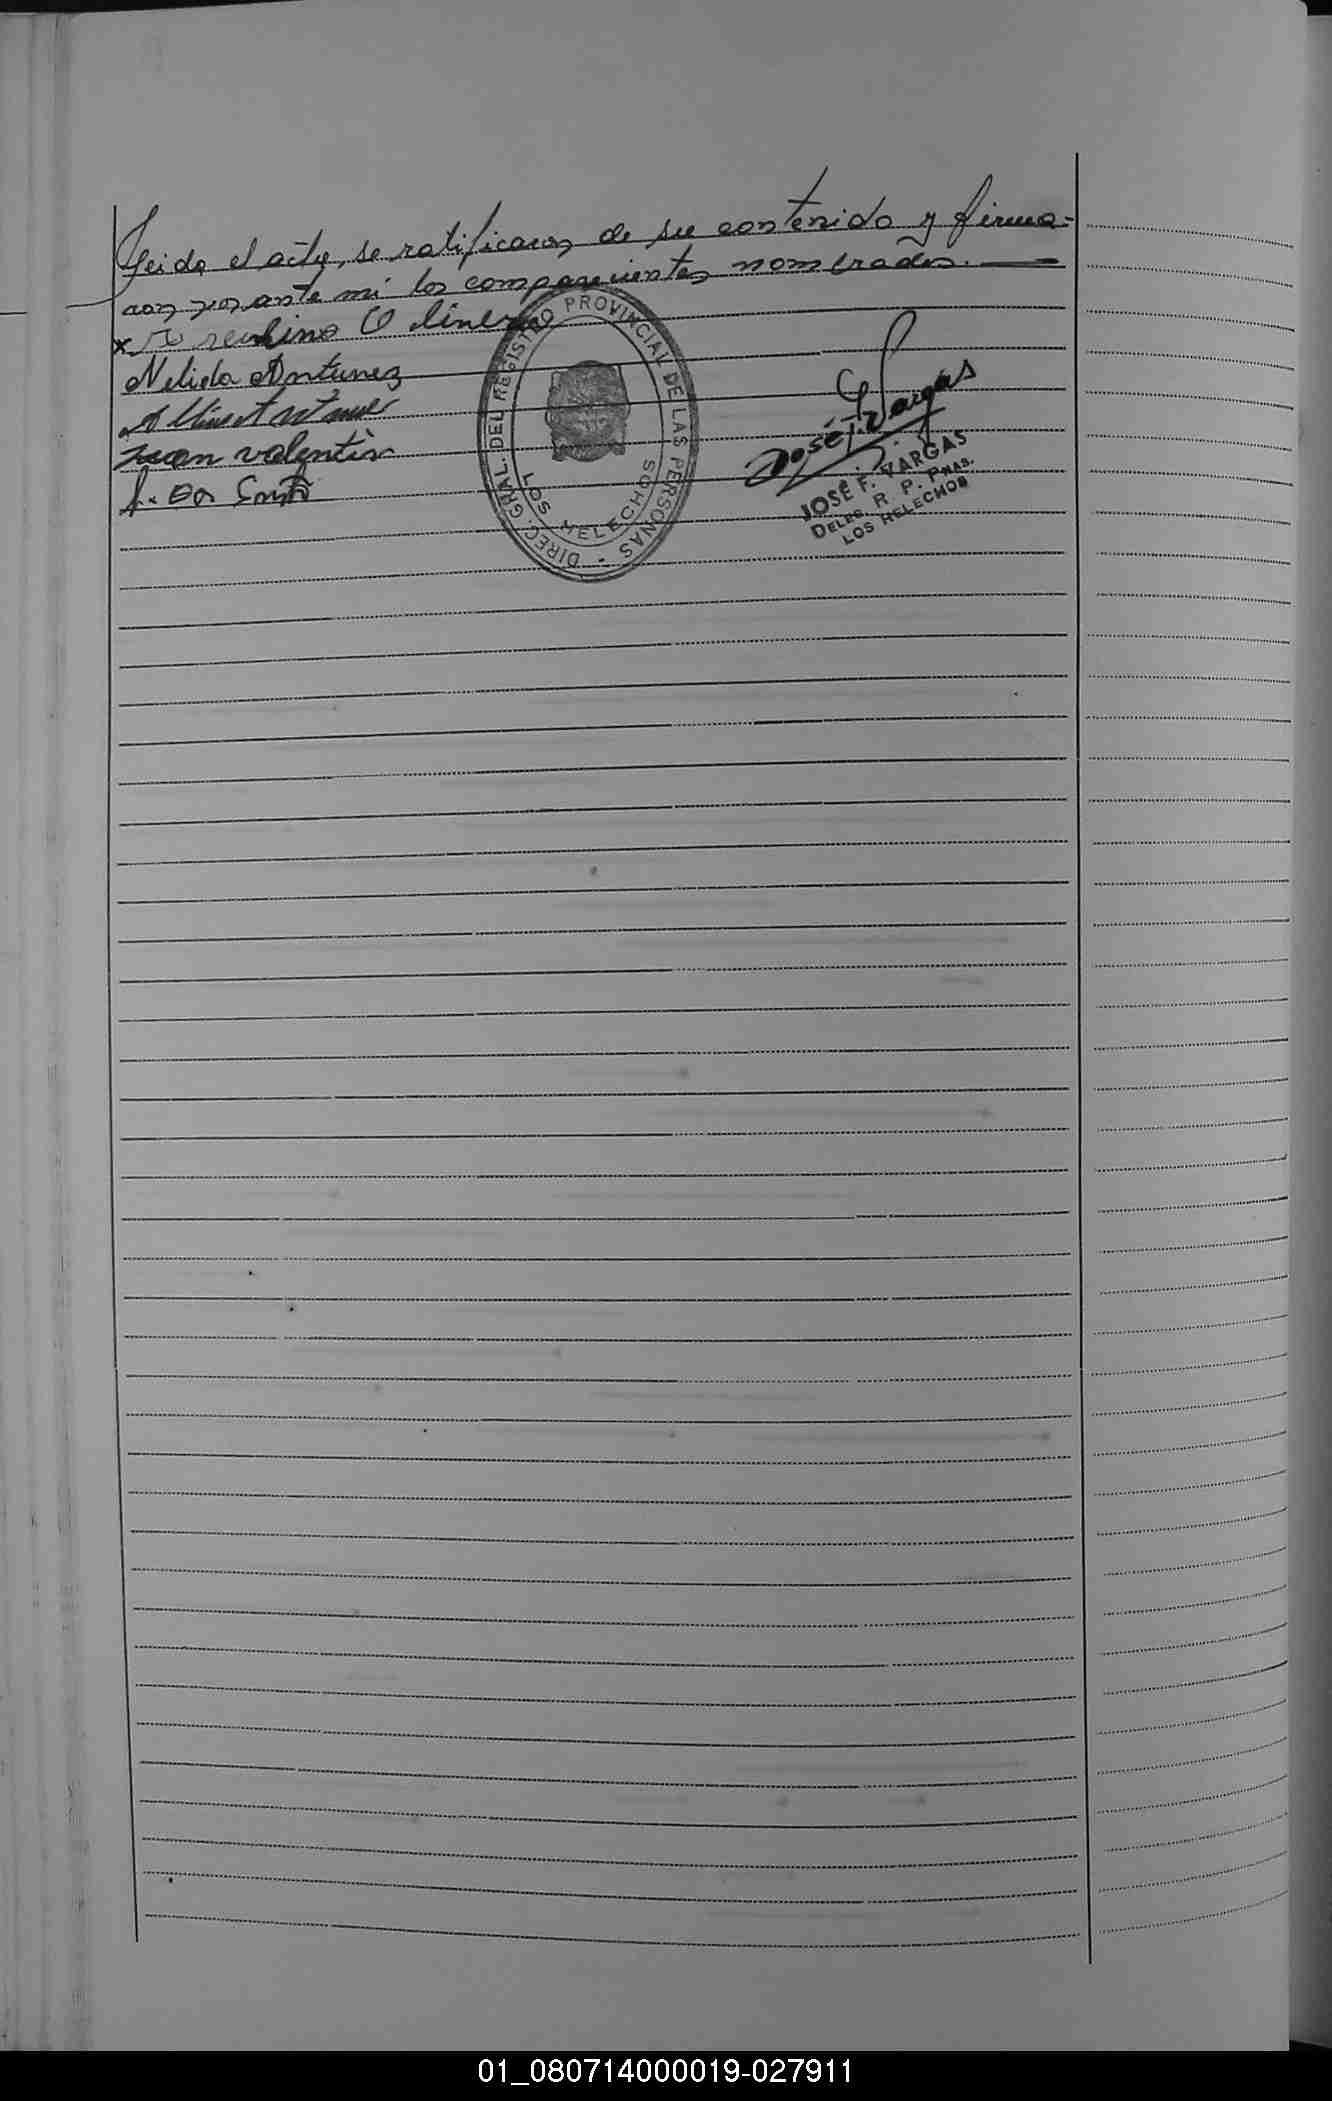 Leida el acta, se ratificaron de su contenido y firma=
ron por ante mi los comparecientes nombrados.
x
Nelida Antunez
Juan valentin
DIREC. GRAL. DEL REGISTRO PROVINCIAL DE LAS PERSONAS -
LOS HELECHOS
José F. Vargas
JOSÉ F. VARGAS
DELEG. R. P. PNAS.
LOS HELECHOS
01_080714000019-027911